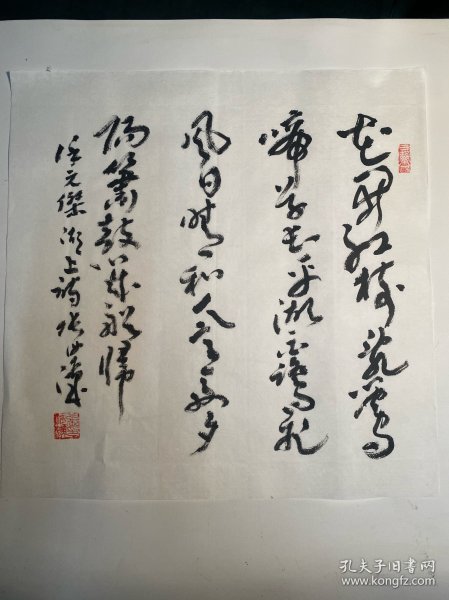 花開紅樹亂鶯
啼草長平湖白鷺飛
風日晴和人意好夕
陽簫鼓幾船歸
徐元傑湖上詩張
孔夫子旧书网
www.kongfz.com